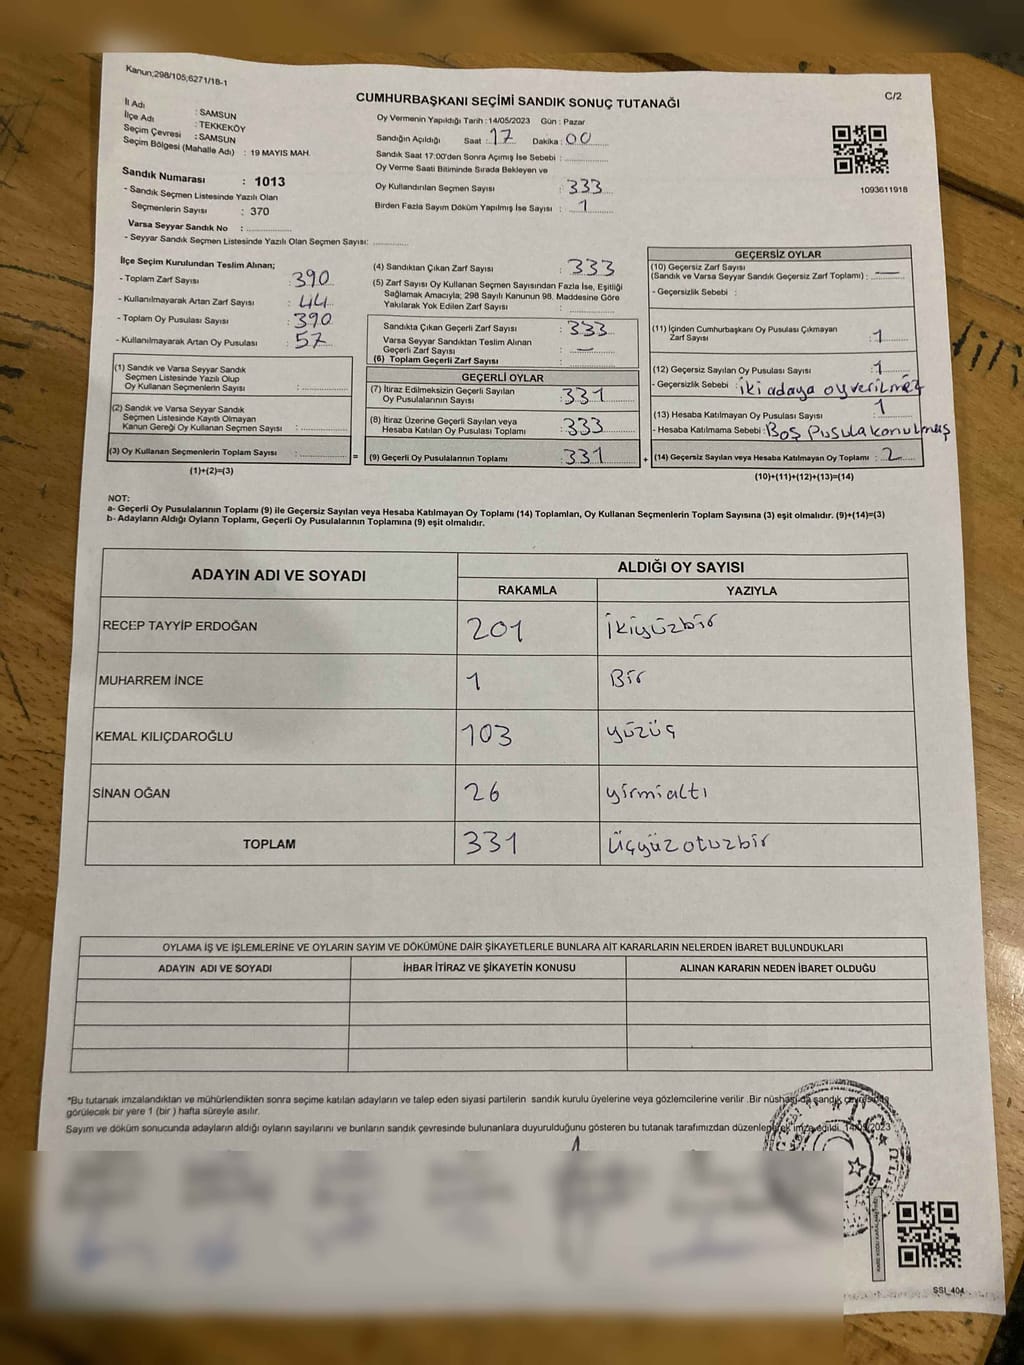 Kanun;298/105;6271/18-1
C/2
CUMHURBAŞKANI SEÇİMİ SANDIK SONUÇ TUTANAĞI
İl Adı : SAMSUN
İlçe Adı : TEKKEKÖY
Seçim Çevresi : SAMSUN
Seçim Bölgesi (Mahalle Adı) : 19 MAYIS MAH.
Sandık Numarası : 1013
- Sandık Seçmen Listesinde Yazılı Olan
Seçmenlerin Sayısı : 370
Varsa Seyyar Sandık No :
- Seyyar Sandık Seçmen Listesinde Yazılı Olan Seçmen Sayısı:
Oy Vermenin Yapıldığı Tarih : 14/05/2023 Gün : Pazar
Sandığın Açıldığı Saat : 17 Dakika : 00
Sandık Saat 17:00'den Sonra Açımış İse Sebebi :
Oy Verme Saati Bitiminde Sırada Bekleyen ve
Oy Kullandırılan Seçmen Sayısı : 333
Birden Fazla Sayım Döküm Yapılmış İse Sayısı : 1
1093611918
İlçe Seçim Kurulundan Teslim Alınan;
- Toplam Zarf Sayısı : 390
- Kullanılmayarak Artan Zarf Sayısı : 44
- Toplam Oy Pusulası Sayısı : 390
- Kullanılmayarak Artan Oy Pusulası : 57
(1) Sandık ve Varsa Seyyar Sandık
Seçmen Listesinde Yazılı Olup
Oy Kullanan Seçmenlerin Sayısı :
(2) Sandık ve Varsa Seyyar Sandık
Seçmen Listesinde Kayıtlı Olmayan
Kanun Gereği Oy Kullanan Seçmen Sayısı :
(3) Oy Kullanan Seçmenlerin Toplam Sayısı :
(1)+(2)=(3)
(4) Sandıktan Çıkan Zarf Sayısı : 333
(5) Zarf Sayısı Oy Kullanan Seçmen Sayısından Fazla İse, Eşitliği
Sağlamak Amacıyla; 298 Sayılı Kanunun 98. Maddesine Göre
Yakılarak Yok Edilen Zarf Sayısı :
Sandıkta Çıkan Geçerli Zarf Sayısı : 333
Varsa Seyyar Sandıktan Teslim Alınan
Geçerli Zarf Sayısı : —
(6) Toplam Geçerli Zarf Sayısı :
GEÇERLİ OYLAR
(7) İtiraz Edilmeksizin Geçerli Sayılan
Oy Pusulalarının Sayısı : 331
(8) İtiraz Üzerine Geçerli Sayılan veya
Hesaba Katılan Oy Pusulası Toplamı : 333
= (9) Geçerli Oy Pusulalarının Toplamı : 331
GEÇERSİZ OYLAR
(10) Geçersiz Zarf Sayısı
(Sandık ve Varsa Seyyar Sandık Geçersiz Zarf Toplamı) : —
- Geçersizlik Sebebi :
(11) İçinden Cumhurbaşkanı Oy Pusulası Çıkmayan
Zarf Sayısı : 1
(12) Geçersiz Sayılan Oy Pusulası Sayısı : 1
- Geçersizlik Sebebi : iki adaya oy verilmez
(13) Hesaba Katılmayan Oy Pusulası Sayısı : 1
- Hesaba Katılmama Sebebi : Boş Pusula konulmuş
+ (14) Geçersiz Sayılan veya Hesaba Katılmayan Oy Toplamı : 2
(10)+(11)+(12)+(13)=(14)
NOT:
a- Geçerli Oy Pusulalarının Toplamı (9) ile Geçersiz Sayılan veya Hesaba Katılmayan Oy Toplamı (14) Toplamları, Oy Kullanan Seçmenlerin Toplam Sayısına (3) eşit olmalıdır. (9)+(14)=(3)
b- Adayların Aldığı Oyların Toplamı, Geçerli Oy Pusulalarının Toplamına (9) eşit olmalıdır.
ADAYIN ADI VE SOYADI
ALDIĞI OY SAYISI
RAKAMLA YAZIYLA
RECEP TAYYİP ERDOĞAN 201 ikiyüzbir
MUHARREM İNCE 1 Bir
KEMAL KILIÇDAROĞLU 103 yüzüç
SİNAN OĞAN 26 yirmialtı
TOPLAM 331 Üçyüzotuzbir
OYLAMA İŞ VE İŞLEMLERİNE VE OYLARIN SAYIM VE DÖKÜMÜNE DAİR ŞİKAYETLERLE BUNLARA AİT KARARLARIN NELERDEN İBARET BULUNDUKLARI
ADAYIN ADI VE SOYADI İHBAR İTİRAZ VE ŞİKAYETİN KONUSU ALINAN KARARIN NEDEN İBARET OLDUĞU
*Bu tutanak imzalandıktan ve mühürlendikten sonra seçime katılan adayların ve talep eden siyasi partilerin sandık kurulu üyelerine veya gözlemcilerine verilir .Bir nüshası da sandık çevresinde
görülecek bir yere 1 (bir ) hafta süreyle asılır.
Sayım ve döküm sonucunda adayların aldığı oyların sayılarını ve bunların sandık çevresinde bulunanlara duyurulduğunu gösteren bu tutanak tarafımızdan düzenlenerek imza edildi. 14/05/2023
SSI_404